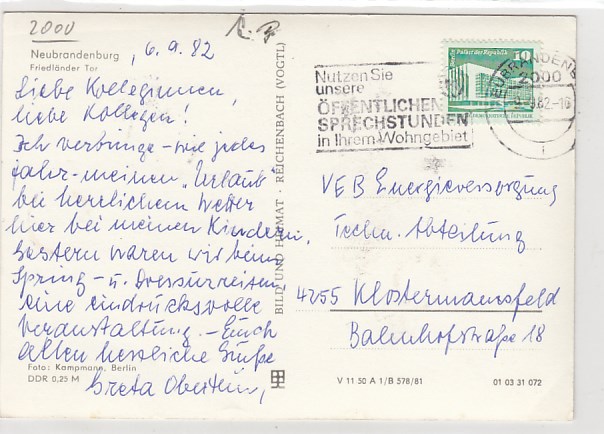 2000
Neubrandenburg
Friedländer Tor
, 6.9.82
Liebe Kolleginnen,
liebe Kollegen!
Ich verbringe - wie jedes
Jahr - meinen „Urlaub"
bei herrlichem Wetter
hier bei meinen Kindern.
Gestern waren wir beim
Spring- u. Dressurreiten
eine eindrucksvolle
Veranstaltung. - Euch
allen herzliche Grüße
Greta
Foto: Kampmann, Berlin
DDR 0,25 M
BILD UND HEIMAT REICHENBACH (VOGTL)
Nutzen Sie
unsere
ÖFFENTLICHEN
SPRECHSTUNDEN
in Ihrem Wohngebiet
Palast der Republik
10
NEUBRANDENB
2000
VEB Energieversorgung
Techn. Abteilung
4255 Klostermansfeld
Bahnhofstraße 18
V 11 50 A 1/B 578/81
01 03 31 072